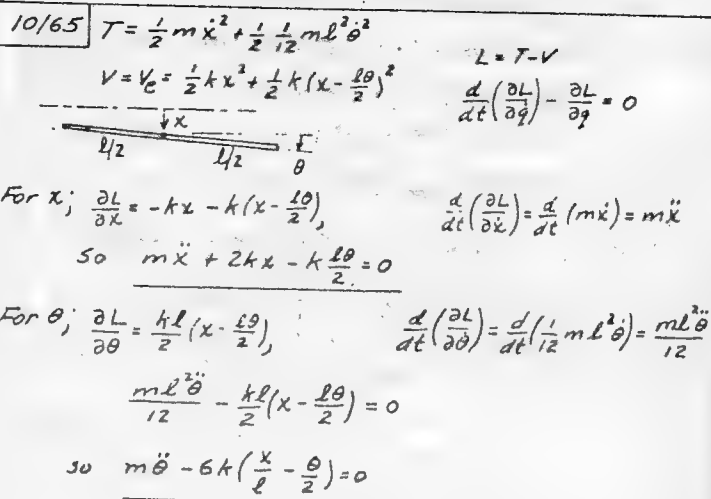 10/65 T = 1/2 m ẋ² + 1/2 1/12 ml² θ̇²
L = T-V
V = Vₑ = 1/2 k x² + 1/2 k (x - lθ/2)²
d/dt (∂L/∂q̇) - ∂L/∂q = 0
x
l/2 l/2 θ
For x; ∂L/∂x = -kx - k(x - lθ/2), d/dt (∂L/∂ẋ) = d/dt (mẋ) = mẍ
so mẍ + 2kx - k lθ/2 = 0
For θ; ∂L/∂θ = kl/2 (x - lθ/2), d/dt (∂L/∂θ̇) = d/dt (1/12 ml² θ̇) = ml²θ̈/12
ml²θ̈/12 - kl/2 (x - lθ/2) = 0
so mθ̈ - 6k (x/l - θ/2) = 0